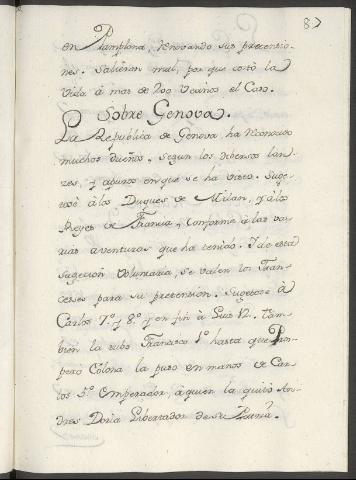 8
en Pamplona, renovando sus pretencio-
nes. Salieron mal, por que costò la
vida à mas de 200 Vecinos el Caso.
Sobre Genova.
La Republica de Genova, ha reconocido
muchos dueños, segun los diversos lan-
zes, y apuros en que se ha visto. Suge-
tose à los Duques de Milan, y à los
Reyes de Francia, conforme à las va-
rias aventuras que ha tenido. De esta
sugecion Voluntaria, se valen los Fran-
ceses para su pretension. Sugetose à
Carlos 7.º y 8.º y en fin à Luis 12. Tam-
bien la tubo Francisco 1.º hasta que Pros-
pero Colona la puso en manos de Car-
los 5.º Emperador, à quien la quitò An-
dres Doria Libertador de su Patria.